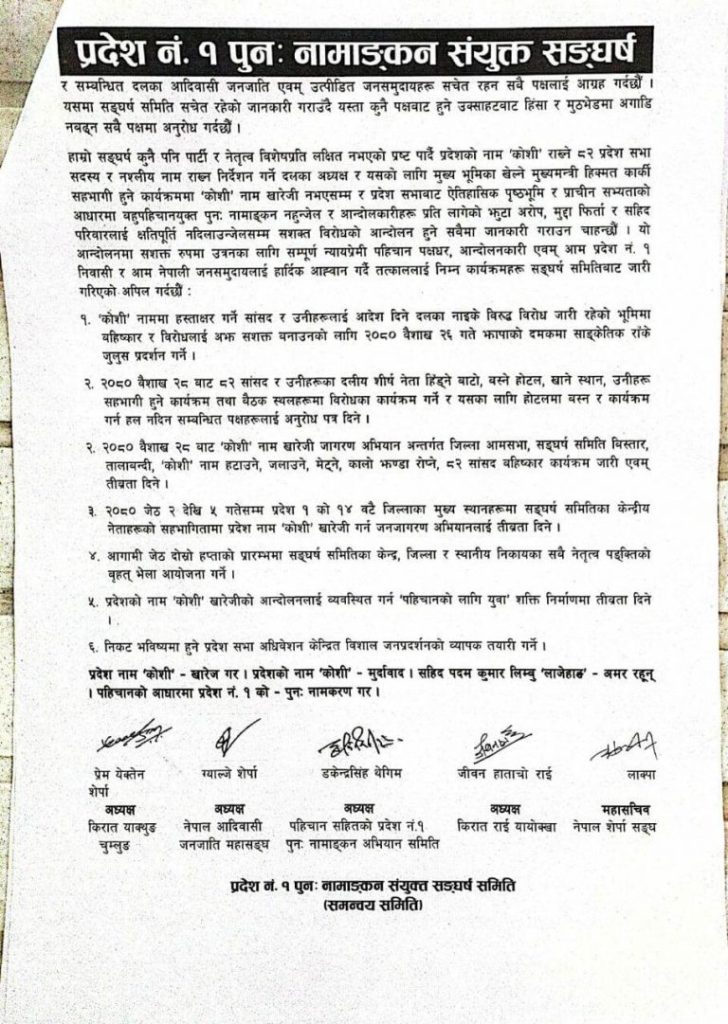 प्रदेश नं. १ पुनः नामाङ्कन संयुक्त सङ्घर्ष
र सम्बन्धित दलका आदिवासी जनजाति एवम् उत्पीडित जनसमुदायहरू सचेत रहन सबै पक्षलाई आग्रह गर्दछौं ।
यसमा सङ्घर्ष समिति सचेत रहेको जानकारी गराउँदै यस्ता कुनै पक्षबाट हुने उक्साहटबाट हिंसा र मुठभेडमा अगाडि
नबढ्न सबै पक्षमा अनुरोध गर्दछौं ।
हाम्रो सङ्घर्ष कुनै पनि पार्टी र नेतृत्व विशेषप्रति लक्षित नभएको प्रष्ट पार्दै प्रदेशको नाम 'कोशी' राख्ने ८२ प्रदेश सभा
सदस्य र नश्लीय नाम राख्न निर्देशन गर्ने दलका अध्यक्ष र यसको लागि मुख्य भूमिका खेल्ने मुख्यमन्त्री हिक्मत कार्की
सहभागी हुने कार्यक्रममा 'कोशी' नाम खारेजी नभएसम्म र प्रदेश सभाबाट ऐतिहासिक पृष्ठभूमि र प्राचीन सभ्यताको
आधारमा बहुपहिचानयुक्त पुनः नामाङ्कन नहुन्जेल र आन्दोलकारीहरू प्रति लागेको झुटा आरोप, मुद्दा फिर्ता र सहिद
परिवारलाई क्षतिपूर्ति नदिलाउन्जेलसम्म सशक्त विरोधको आन्दोलन हुने सबैमा जानकारी गराउन चाहन्छौं । यो
आन्दोलनमा सशक्त रुपमा उत्रनका लागि सम्पूर्ण न्यायप्रेमी पहिचान पक्षधर, आन्दोलनकारी एवम् आम प्रदेश नं. १
निवासी र आम नेपाली जनसमुदायलाई हार्दिक आह्वान गर्दै तत्काललाई निम्न कार्यक्रमहरू सङ्घर्ष समितिबाट जारी
गरिएको अपिल गर्दछौं :
१. 'कोशी' नाममा हस्ताक्षर गर्ने सांसद र उनीहरूलाई आदेश दिने दलका नाइके विरुद्ध विरोध जारी रहेको भूमिमा
बहिष्कार र विरोधलाई अझ सशक्त बनाउनको लागि २०८० वैशाख २६ गते झापाको दमकमा साङ्केतिक राँके
जुलुस प्रदर्शन गर्ने ।
२. २०८० वैशाख २८ बाट ८२ सांसद र उनीहरूका दलीय शीर्ष नेता हिंड्ने बाटो, बस्ने होटल, खाने स्थान, उनीहरू
सहभागी हुने कार्यक्रम तथा बैठक स्थलहरूमा विरोधका कार्यक्रम गर्ने र यसका लागि होटलमा बस्न र कार्यक्रम
गर्न हल नदिन सम्बन्धित पक्षहरूलाई अनुरोध पत्र दिने ।
२. २०८० वैशाख २८ बाट 'कोशी' नाम खारेजी जागरण अभियान अन्तर्गत जिल्ला आमसभा, सङ्घर्ष समिति बिस्तार,
तालाबन्दी, 'कोशी' नाम हटाउने, जलाउने, मेट्ने, कालो झण्डा रोप्ने, ८२ सांसद बहिष्कार कार्यक्रम जारी एवम्
तीव्रता दिने ।
३. २०८० जेठ २ देखि ५ गतेसम्म प्रदेश १ को १४ वटै जिल्लाका मुख्य स्थानहरूमा सङ्घर्ष समितिका केन्द्रीय
नेताहरूको सहभागितामा प्रदेश नाम 'कोशी' खारेजी गर्न जनजागरण अभियानलाई तीव्रता दिने ।
४. आगामी जेठ दोस्रो हप्ताको प्रारम्भमा सङ्घर्ष समितिका केन्द्र, जिल्ला र स्थानीय निकायका सबै नेतृत्व पङ्क्तिको
बृहत् भेला आयोजना गर्ने ।
५. प्रदेशको नाम 'कोशी' खारेजीको आन्दोलनलाई व्यवस्थित गर्न 'पहिचानको लागि युवा' शक्ति निर्माणमा तीव्रता दिने
।
६. निकट भविष्यमा हुने प्रदेश सभा अधिवेशन केन्द्रित विशाल जनप्रदर्शनको व्यापक तयारी गर्ने ।
प्रदेश नाम 'कोशी' - खारेज गर । प्रदेशको नाम 'कोशी' - मुर्दावाद । सहिद पदम कुमार लिम्बु 'लाजेहाङ' - अमर रहून्
। पहिचानको आधारमा प्रदेश नं. १ को - पुनः नामकरण गर ।
प्रेम येक्तेन शेर्पा ग्याल्जे शेर्पा डकेन्द्रसिंह थेगिम जीवन हाताचो राई लाक्पा
अध्यक्ष अध्यक्ष अध्यक्ष अध्यक्ष महासचिव
किरात याक्थुङ नेपाल आदिवासी पहिचान सहितको प्रदेश नं.१ किरात राई यायोक्खा नेपाल शेर्पा सङ्घ
चुम्लुङ जनजाति महासङ्घ पुनः नामाङ्कन अभियान समिति
प्रदेश नं. १ पुनः नामाङ्कन संयुक्त सङ्घर्ष समिति
(समन्वय समिति)